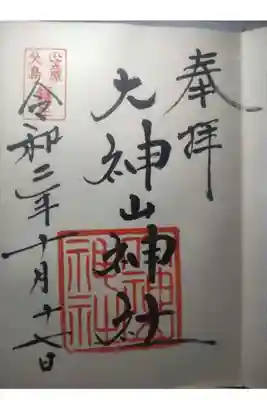 奉拝
大神山神社
小笠原
父島
令和二年十月十七日